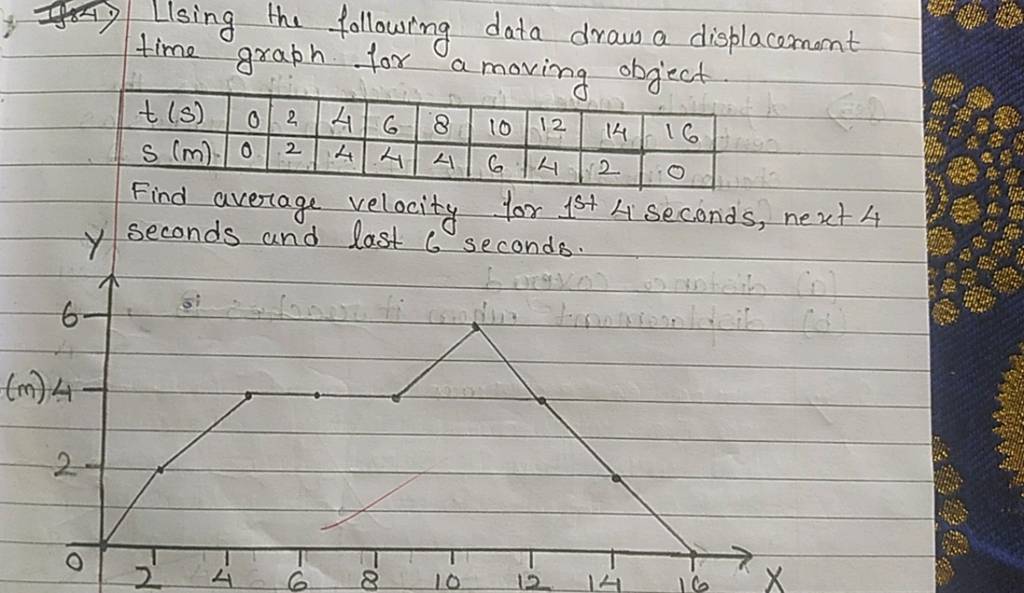 Using the following data draw a displacement
time graph for a moving object.
t (s) 0 2 4 6 8 10 12 14 16
S (m) 0 2 4 4 4 6 4 2 0
Find average velocity for 1st 4 seconds, next 4
seconds and last 6 seconds.
Y
6
(m) 4
2
0 2 4 6 8 10 12 14 16 X